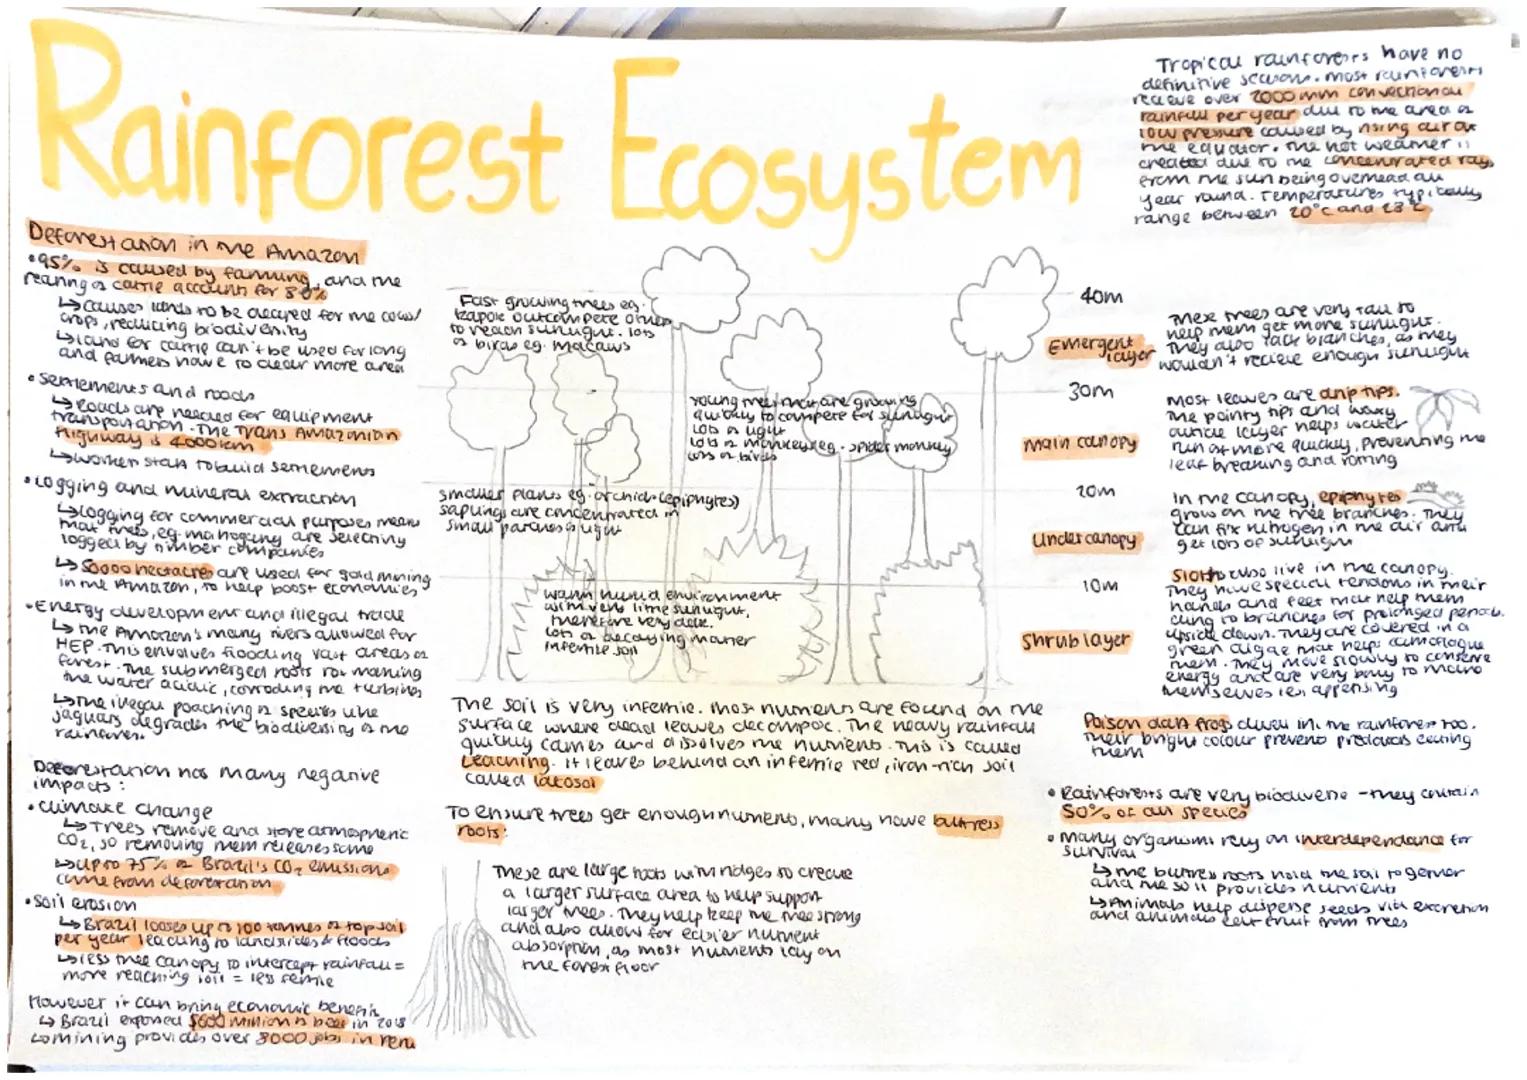 Rainforest Ecosystem
Tropical rainforests have no
definitive seasons. Most rainforests
recieve over 2000 mm convectional
rainfall per year due to the area of
low pressure caused by rising air at
the equator. The hot weather is
created due to the concentrated rays
from the sun being overhead all
year round. Temperatures typically
range between 20°c and 28°c
Deforestation in the Amazon
• 95% is caused by farming, and the
rearing of cattle accounts for 80%
↳ causes lands to be cleared for the cows/
crops, reducing biodiversity
↳ land for cattle can't be used for long
and farmers have to clear more area
• Settlements and roads
↳ Roads are needed for equipment
transportation. The Trans Amazonian
Highway is 4000km
↳ workers start to build settlements
• Logging and mineral extraction
↳ Logging for commercial purposes means
that trees, eg. mahogany are
logged by timber companies
↳ 50000 hectacres are used for gold mining
in the Amazon, to help boost economies
• Energy development and illegal trade
↳ The Amazon's many rivers allowed for
HEP. This involves flooding vast areas of
forest. The submerged roots making
the water acidic, corroding the turbines
↳ The illegal poaching of species like
jaguars degrades the biodiversity of the
rainforest
Deforestation has many negative
impacts:
• climate change
↳ Trees remove and store atmospheric
CO₂, so removing them releases some
↳ up to 75% of Brazil's CO₂ emissions
come from deforestation
• soil erosion
↳ Brazil looses up to 100 tonnes of topsoil
per year leading to landslides & floods
↳ less tree canopy to intercept rainfall =
more reaching soil = less fertile
However it can bring economic benefits
↳ Brazil exported $600 million of beef in 2018
↳ mining provides over 8000 jobs in Peru
Fast growing trees eg.
kapok outcompete others
to reach sunlight. lots
of birds eg. macaws
young trees that are growing
quickly to compete for sunlight
Lots of light
Lots of monkeys eg. spider monkey
Lots of birds
smaller plants eg. orchids (epiphytes)
saplings are concentrated in
small patches of light
warm humid environment
with very little sunlight,
therefore very dark.
Lots of decaying matter
infertile soil
40m
Emergent
layer
30m
main canopy
20m
Under canopy
10m
Shrub layer
The soil is very infertile. Most nutrients are found on the
surface where dead leaves decompose. The heavy rainfall
quickly comes and dissolves the nutrients. This is called
Leaching. It leaves behind an infertile red, iron-rich soil
called latosol
To ensure trees get enough nutrients, many have buttress
roots:
These are large roots with ridges to create
a larger surface area to help support
larger trees. They help keep the tree strong
and also allow for easier nutrient
absorption, as most nutrients lay on
the forest floor
These trees are very tall to
help them get more sunlight.
They also lack branches, as they
wouldn't recieve enough sunlight
Most leaves are drip tips.
The pointy tips and waxy
cuticle layer helps water
run of more quickly, preventing the
leaf breaking and rotting
In the canopy, epiphytes
grow on the tree branches. They
can fix nitrogen, in the air and
get lots of sunlight
Sloths also live in the canopy.
They have special tendons in their
hands and feet that help them
cling to branches for prolonged periods
upside down. They are covered in a
green algae that helps camoflague
them. They move slowly to conserve
energy and are very bony to make
themselves less appetising
Poison dart frogs dwell in the rainforest too.
Their bright colour prevents predators eating
them
• Rainforests are very biodiverse - they contain
50% of all species
• Many organisms rely on interdependance for
survival
↳ The buttress roots hold the soil together
and the soil provides nutrients
↳ Animals help disperse seeds via excretion
and animals eat fruit from trees